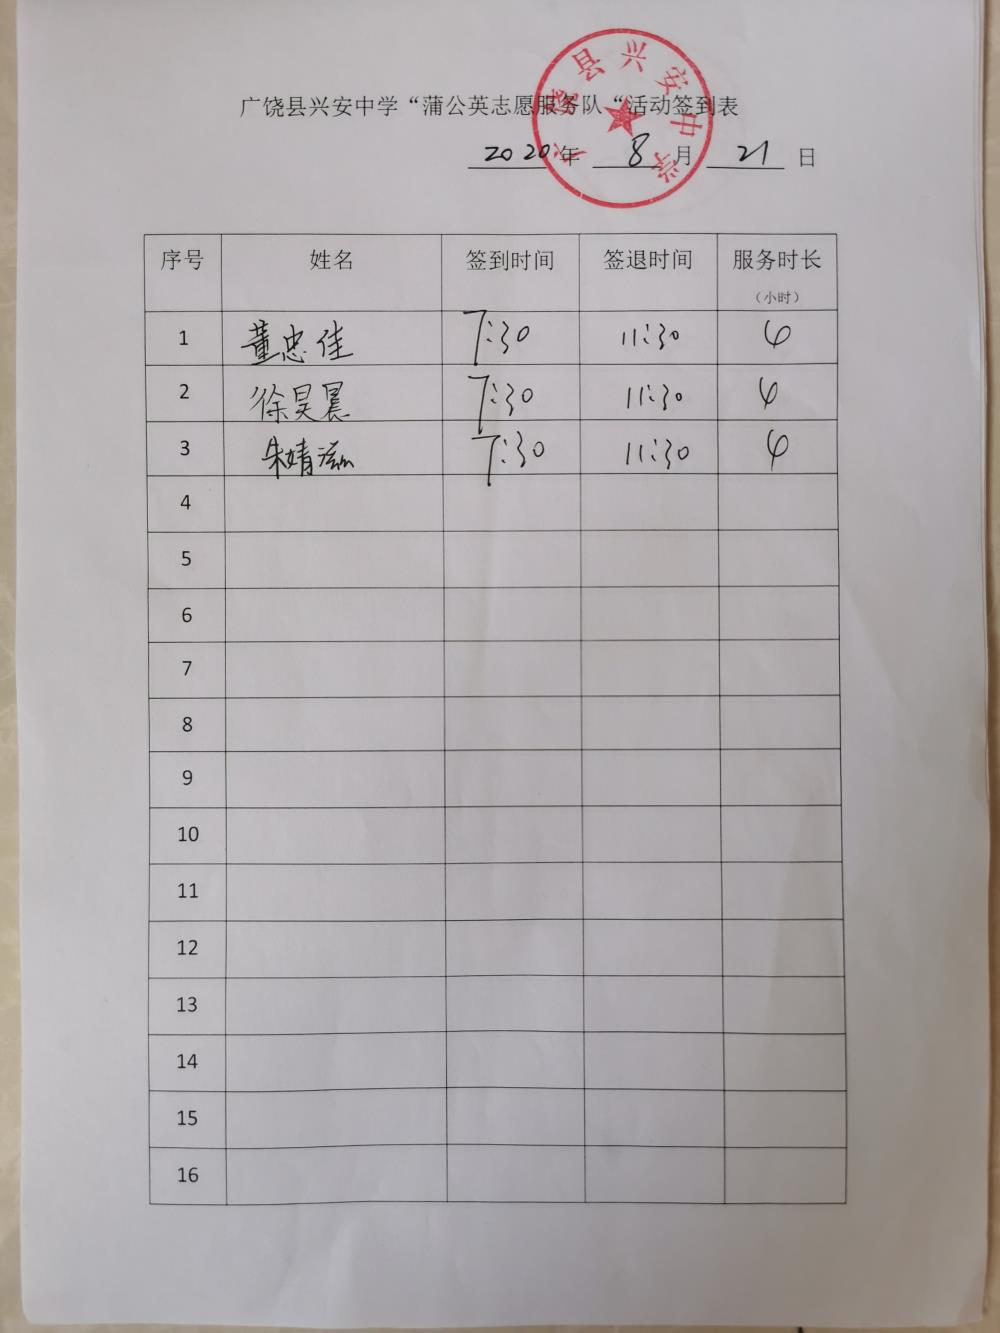 广饶县兴安中学“蒲公英志愿服务队“活动签到表
广饶县兴安中学
2020年 8月 21日
序号 姓名 签到时间 签退时间 服务时长
（小时）
1 董忠佳 7:30 11:30 4
2 徐昊晨 7:30 11:30 4
3 朱婧滋 7:30 11:30 4
4
5
6
7
8
9
10
11
12
13
14
15
16